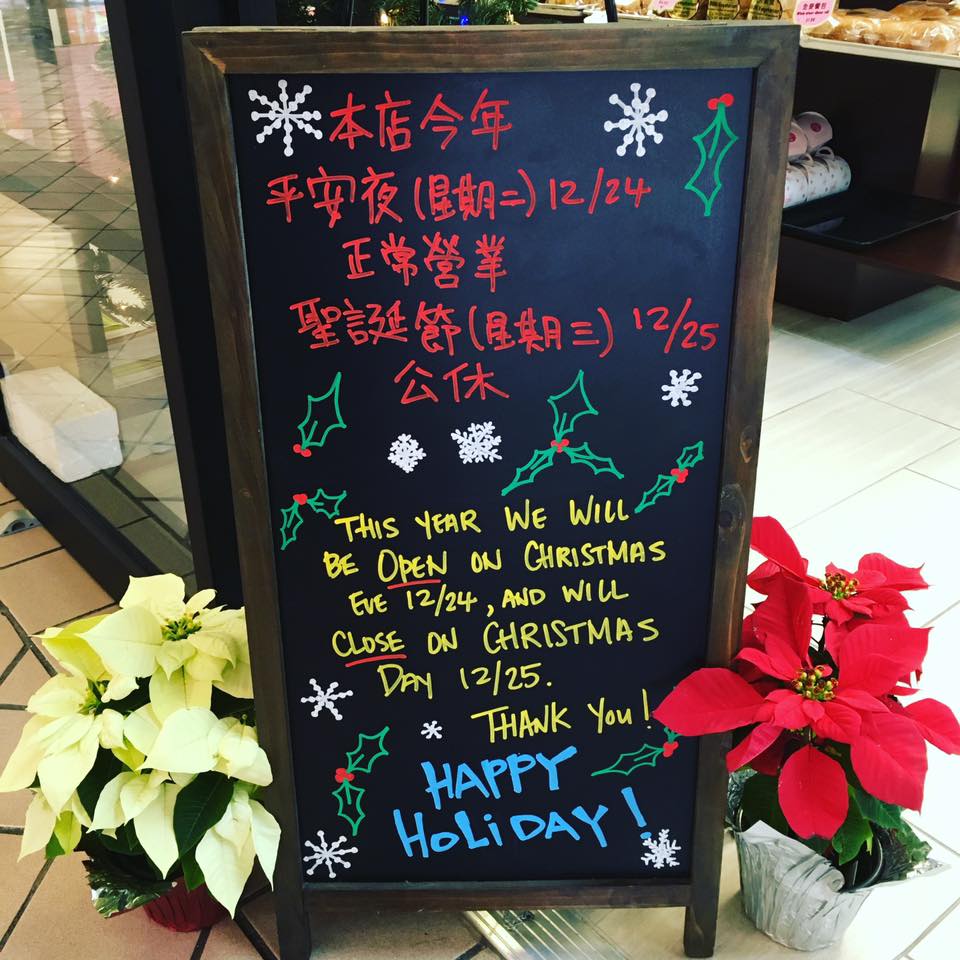 本店今年
平安夜(星期二)12/24
正常營業
聖誕節(星期三) 12/25
公休
THIS YEAR WE WILL
BE OPEN ON CHRISTMAS
EVE 12/24, AND WILL
CLOSE ON CHRISTMAS
DAY 12/25.
THANK YOU!
HAPPY
HOLiDAY!